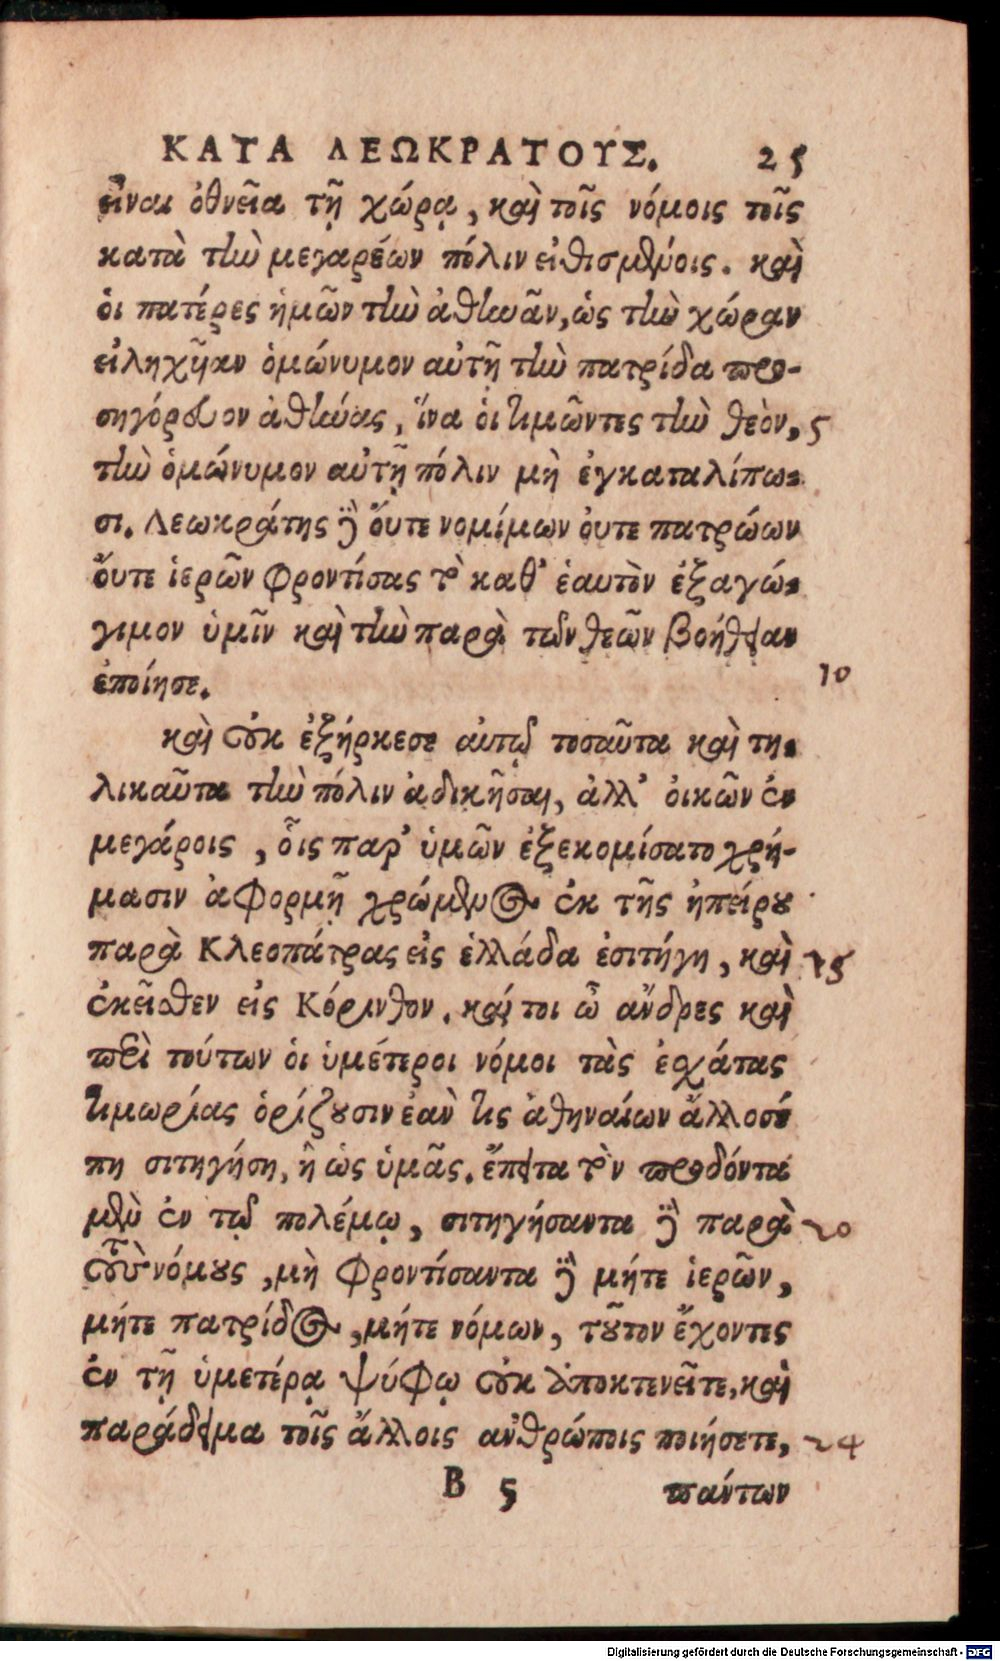 ΚΑΤΑ ΛΕΩΚΡΑΤΟΥΣ. 25
εἶναι ὀθνεῖα τῇ χώρᾳ, καὶ τοῖς νόμοις τοῖς
κατὰ τὴν μεγαρέων πόλιν εἰθισμένοις. καὶ
ὁι πατέρες ἡμῶν τὴν ἀθηνᾶν, ὡς τὴν χώραν
εἰληχῦαν ὁμώνυμον αὐτῇ τὴν πατρίδα προ-
σηγόρευον ἀθήνας, ἵνα ὁι τιμῶντες τὴν θεὸν, 5
τὴν ὁμώνυμον αὐτῇ πόλιν μὴ ἐγκαταλίπω-
σι. Λεωκράτης δὲ ὄυτε νομίμων ὀυτε πατρώων
ὄυτε ἱερῶν φροντίσας τὸ καθ' ἑαυτὸν ἐξαγώ-
γιμον ὑμῖν καὶ τὴν παρὰ τῶν θεῶν βοήθειαν
ἐποίησε. 10
καὶ οὐκ ἐξήρκεσε αὐτῷ τοσαῦτα καὶ τη-
λικαῦτα τὴν πόλιν ἀδικῆσαι, ἀλλ' ὀικῶν ἐν
μεγάροις, ὁῖς παρ' ὑμῶν ἐξεκομίσατο χρή-
μασιν ἀφορμῇ χρώμενος ἐκ τῆς ἠπείρου
παρὰ Κλεοπάτρας εἰς ἑλλάδα ἐσιτήγη, καὶ 15
ἐκεῖθεν εἰς Κόρινθον. καί τοι ὦ ἄνδρες καὶ
περὶ τούτων ὁι ὑμέτεροι νόμοι τὰς ἐσχάτας
τιμωρίας ὁρίζουσιν ἐὰν τις ἀθηναίων ἄλλοσέ
πη σιτηγήση, ἢ ὡς ὑμᾶς. ἔπειτα τὸν προδόντα
μὲν ἐν τῷ πολέμῳ, σιτηγήσαντα δὲ παρὰ 20
τοὺς νόμους, μὴ φροντίσαντα δὲ μήτε ἱερῶν,
μήτε πατρίδος, μήτε νόμων, τοῦτον ἔχοντες
ἐν τῇ ὑμετέρᾳ ψύφῳ οὐκ ἀποκτενεῖτε, καὶ
παράδειμα τοῖς ἄλλοις ανθρώποις ποιήσετε, 24
B 5 πάντων
Digitalisierung gefördert durch die Deutsche Forschungsgemeinschaft - DFG